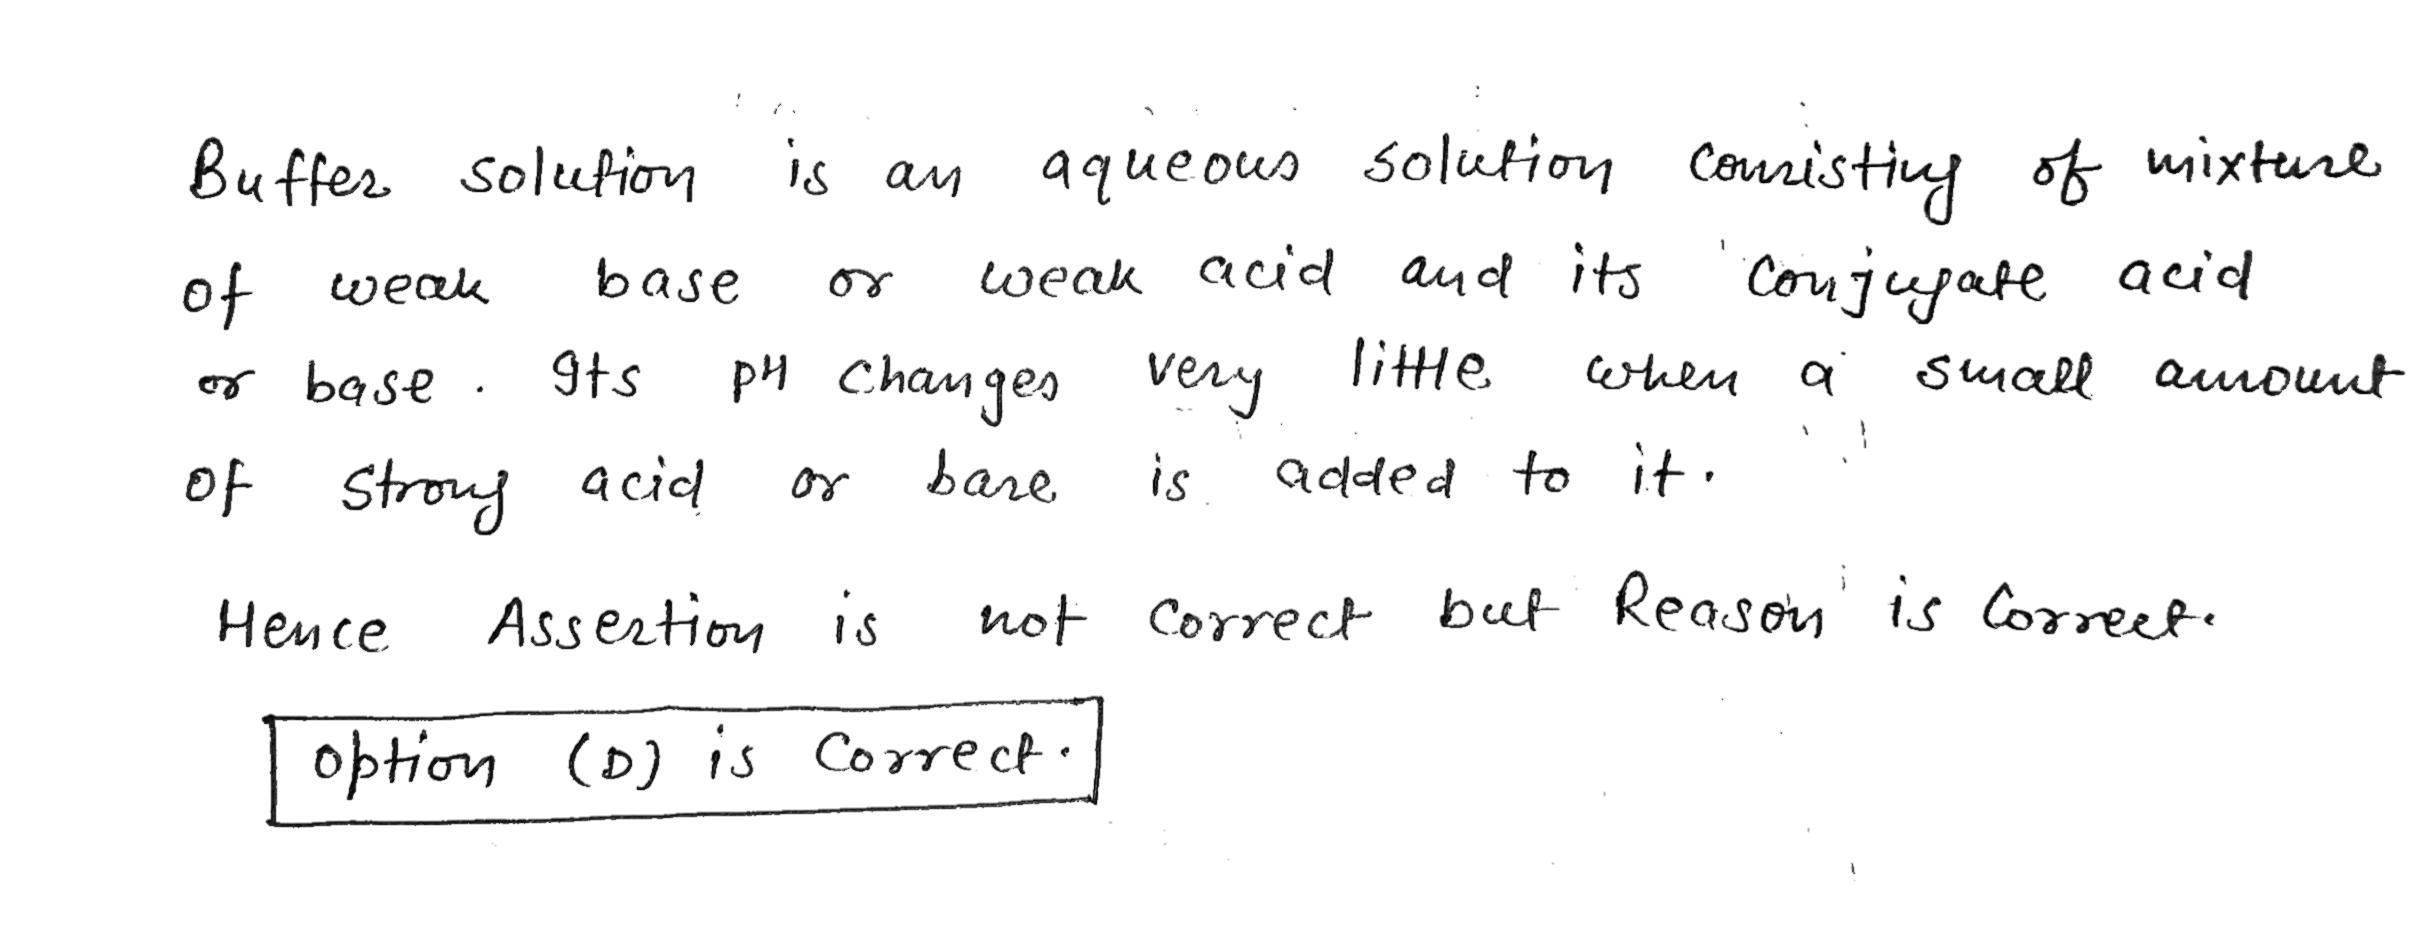 Buffer solution is an aqueous solution consisting of mixture
of weak base or weak acid and its conjugate acid
or base. Its pH changes very little when a small amount
of strong acid or base is added to it.
Hence Assertion is not correct but Reason is correct.
option (D) is correct.